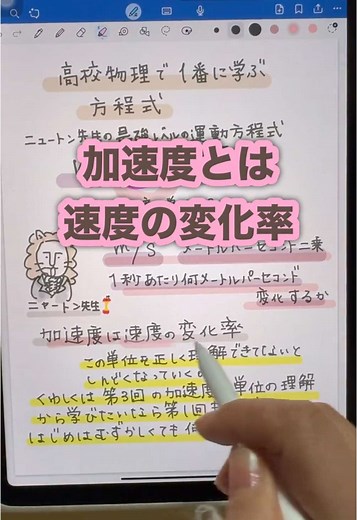 高校物理で1番に学ぶ
方程式
ニュートン先生の最強レベルの運動方程式
加速度とは
速度の変化率
m/s メートルパーセコンド二乗
1秒あたり何メートルパーセコンド
変化するか
ニャートン先生
加速度は速度の変化率
この単位を正しく理解できてないと
しんどくなっていく
くわしくは 第3回 の加速度 単位の理解
から学びたいなら第1回
はじめはむずかしくても